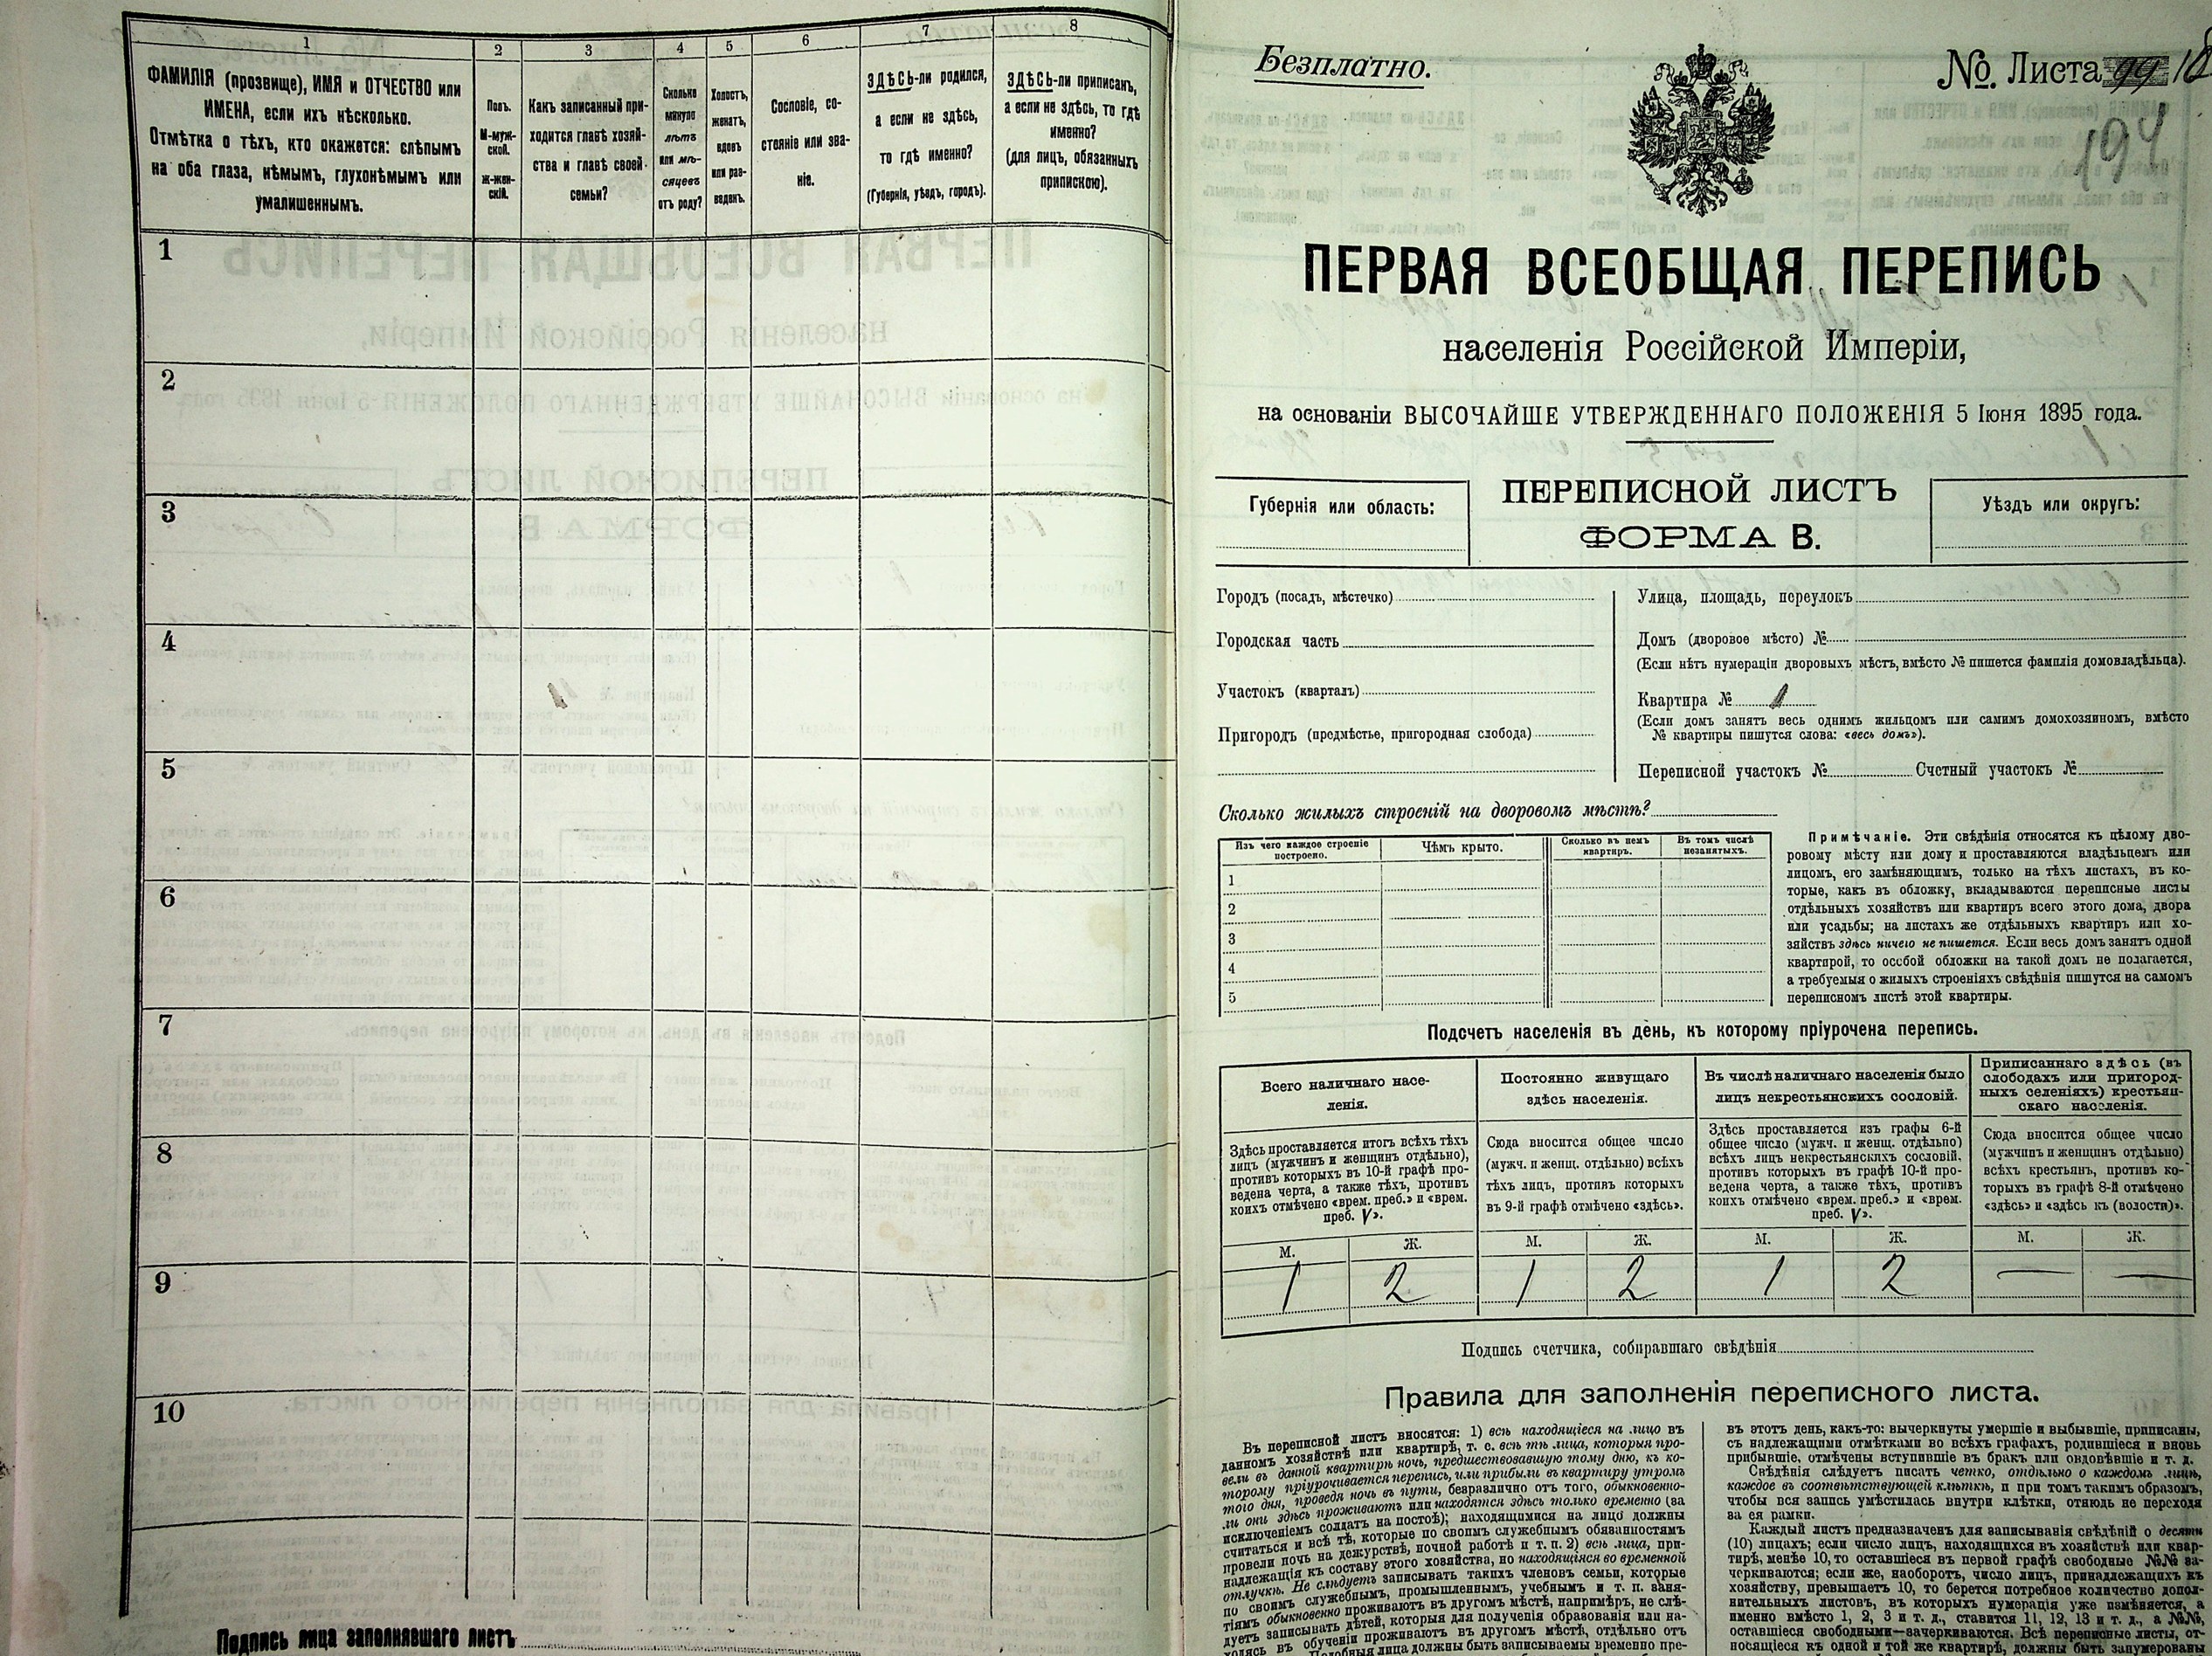 1
2
3
4
5
6
7
8
ФАМИЛІЯ (прозвище), ИМЯ и ОТЧЕСТВО или
ИМЕНА, если ихъ нѣсколько.
Отмѣтка о тѣхъ, кто окажется: слѣпымъ
на оба глаза, нѣмымъ, глухонѣмымъ или
умалишеннымъ.
Полъ.
М-муж-
ской.
ж-жен-
скій.
Какъ записанный при-
ходится главѣ хозяй-
ства и главѣ своей
семьи?
Сколько
минуло
лѣтъ
или мѣ-
сяцевъ
отъ роду?
Холостъ,
женатъ,
вдовъ
или раз-
веденъ.
Сословіе, со-
стояніе или зва-
ніе.
ЗДѢСЬ-ли родился,
а если не здѣсь,
то гдѣ именно?
(Губернія, уѣздъ, городъ).
ЗДѢСЬ-ли приписанъ,
а если не здѣсь, то гдѣ
именно?
(для лицъ, обязанныхъ
припискою).
1
2
3
4
5
6
7
8
9
10
Подпись лица заполнявшаго листъ
Безплатно.
№ Листа
194
ПЕРВАЯ ВСЕОБЩАЯ ПЕРЕПИСЬ
населенія Россійской Имперіи,
на основаніи ВЫСОЧАЙШЕ УТВЕРЖДЕННАГО ПОЛОЖЕНІЯ 5 Іюня 1895 года.
Губернія или область:
ПЕРЕПИСНОЙ ЛИСТЪ
ФОРМА В.
Уѣздъ или округъ:
Городъ (посадъ, мѣстечко)
Городская часть
Участокъ (кварталъ)
Пригородъ (предмѣстье, пригородная слобода)
Улица, площадь, переулокъ
Домъ (дворовое мѣсто) №
(Если нѣтъ нумераціи дворовыхъ мѣстъ, вмѣсто № пишется фамилія домовладѣльца).
Квартира № 1
(Если домъ занятъ весь однимъ жильцомъ или самимъ домохозяиномъ, вмѣсто
№ квартиры пишутся слова: «весь домъ»).
Переписной участокъ № Счетный участокъ №
Сколько жилыхъ строеній на дворовомъ мѣстѣ?
Изъ чего каждое строеніе
построено.
Чѣмъ крыто.
Сколько въ немъ
квартиръ.
Въ томъ числѣ
незанятыхъ.
1
2
3
4
5
Примѣчаніе. Эти свѣдѣнія относятся къ цѣлому дво-
ровому мѣсту или дому и проставляются владѣльцемъ или
лицомъ, его замѣняющимъ, только на тѣхъ листахъ, въ ко-
торые, какъ въ обложку, вкладываются переписные листы
отдѣльныхъ хозяйствъ или квартиръ всего этого дома, двора
или усадьбы; на листахъ же отдѣльныхъ квартиръ или хо-
зяйствъ здѣсь ничего не пишется. Если весь домъ занятъ одной
квартирой, то особой обложки на такой домъ не полагается,
а требуемыя о жилыхъ строеніяхъ свѣдѣнія пишутся на самомъ
переписномъ листѣ этой квартиры.
Подсчетъ населенія въ день, къ которому пріурочена перепись.
Всего наличнаго насе-
ленія.
Постоянно живущаго
здѣсь населенія.
Въ числѣ наличнаго населенія было
лицъ некрестьянскихъ сословій.
Приписаннаго здѣсь (въ
слободахъ или пригород-
ныхъ селеніяхъ) крестьян-
скаго населенія.
Здѣсь проставляется итогъ всѣхъ тѣхъ
лицъ (мужчинъ и женщинъ отдѣльно),
противъ которыхъ въ 10-й графѣ про-
ведена черта, а также тѣхъ, противъ
коихъ отмѣчено «врем. преб.» и «врем.
преб. V».
Сюда вносится общее число
(мужч. и женщ. отдѣльно) всѣхъ
тѣхъ лицъ, противъ которыхъ
въ 9-й графѣ отмѣчено «здѣсь».
Здѣсь проставляется изъ графы 6-й
общее число (мужч. и женщ. отдѣльно)
всѣхъ лицъ некрестьянскихъ сословій,
противъ которыхъ въ графѣ 10-й про-
ведена черта, а также тѣхъ, противъ
коихъ отмѣчено «врем. преб.» и «врем.
преб. V».
Сюда вносится общее число
(мужчинъ и женщинъ отдѣльно)
всѣхъ крестьянъ, противъ ко-
торыхъ въ графѣ 8-й отмѣчено
«здѣсь» и «здѣсь къ (волости)».
М. Ж. М. Ж. М. Ж. М. Ж.
1 2 1 2 1 2 — —
Подпись счетчика, собиравшаго свѣдѣнія
Правила для заполненія переписного листа.
Въ переписной листъ вносятся: 1) всѣ находящіеся на лицо въ
данномъ хозяйствѣ или квартирѣ, т. е. всѣ тѣ лица, которыя про-
вели въ данной квартирѣ ночь, предшествовавшую тому дню, къ ко-
торому пріурочивается перепись, или прибыли въ квартиру утромъ
того дня, проведя ночь въ пути, безразлично отъ того, обыкновенно-
ли они здѣсь проживаютъ или находятся здѣсь только временно (за
исключеніемъ солдатъ на постоѣ); находящимися на лицо должны
считаться и всѣ тѣ, которые по своимъ служебнымъ обязанностямъ
провели ночь на дежурствѣ, ночной работѣ и т. п. 2) всѣ лица, при-
надлежащія къ составу этого хозяйства, но находящіяся во временной
отлучкѣ. Не слѣдуетъ записывать такихъ членовъ семьи, которые
по своимъ служебнымъ, промышленнымъ, учебнымъ и т. п. заня-
тіямъ обыкновенно проживаютъ въ другомъ мѣстѣ, напримѣръ, не слѣ-
дуетъ записывать дѣтей, которыя для полученія образованія или на-
ходясь въ обученіи проживаютъ въ другомъ мѣстѣ, отдѣльно отъ
лица должны быть записываемы временно пре-
въ этотъ день, какъ-то: вычеркнуты умершіе и выбывшіе, приписаны,
съ надлежащими отмѣтками во всѣхъ графахъ, родившіеся и вновь
прибывшіе, отмѣчены вступившіе въ бракъ или овдовѣвшіе и т. д.
Свѣдѣнія слѣдуетъ писать четко, отдѣльно о каждомъ лицѣ,
каждое въ соотвѣтствующей клѣткѣ, и при томъ такимъ образомъ,
чтобы вся запись умѣстилась внутри клѣтки, отнюдь не переходя
за ея рамки.
Каждый листъ предназначенъ для записыванія свѣдѣній о десяти
(10) лицахъ; если число лицъ, находящихся въ хозяйствѣ или квар-
тирѣ, менѣе 10, то оставшіеся въ первой графѣ свободные №№ за-
черкиваются; если же, наоборотъ, число лицъ, принадлежащихъ къ
хозяйству, превышаетъ 10, то берется потребное количество допол-
нительныхъ листовъ, въ которыхъ нумерація уже измѣняется, а
именно вмѣсто 1, 2, 3 и т. д., ставится 11, 12, 13 и т. д., а №№,
оставшіеся свободными—зачеркиваются. Всѣ переписные листы, от-
носящіеся къ одной и той же квартирѣ, должны быть занумерованы